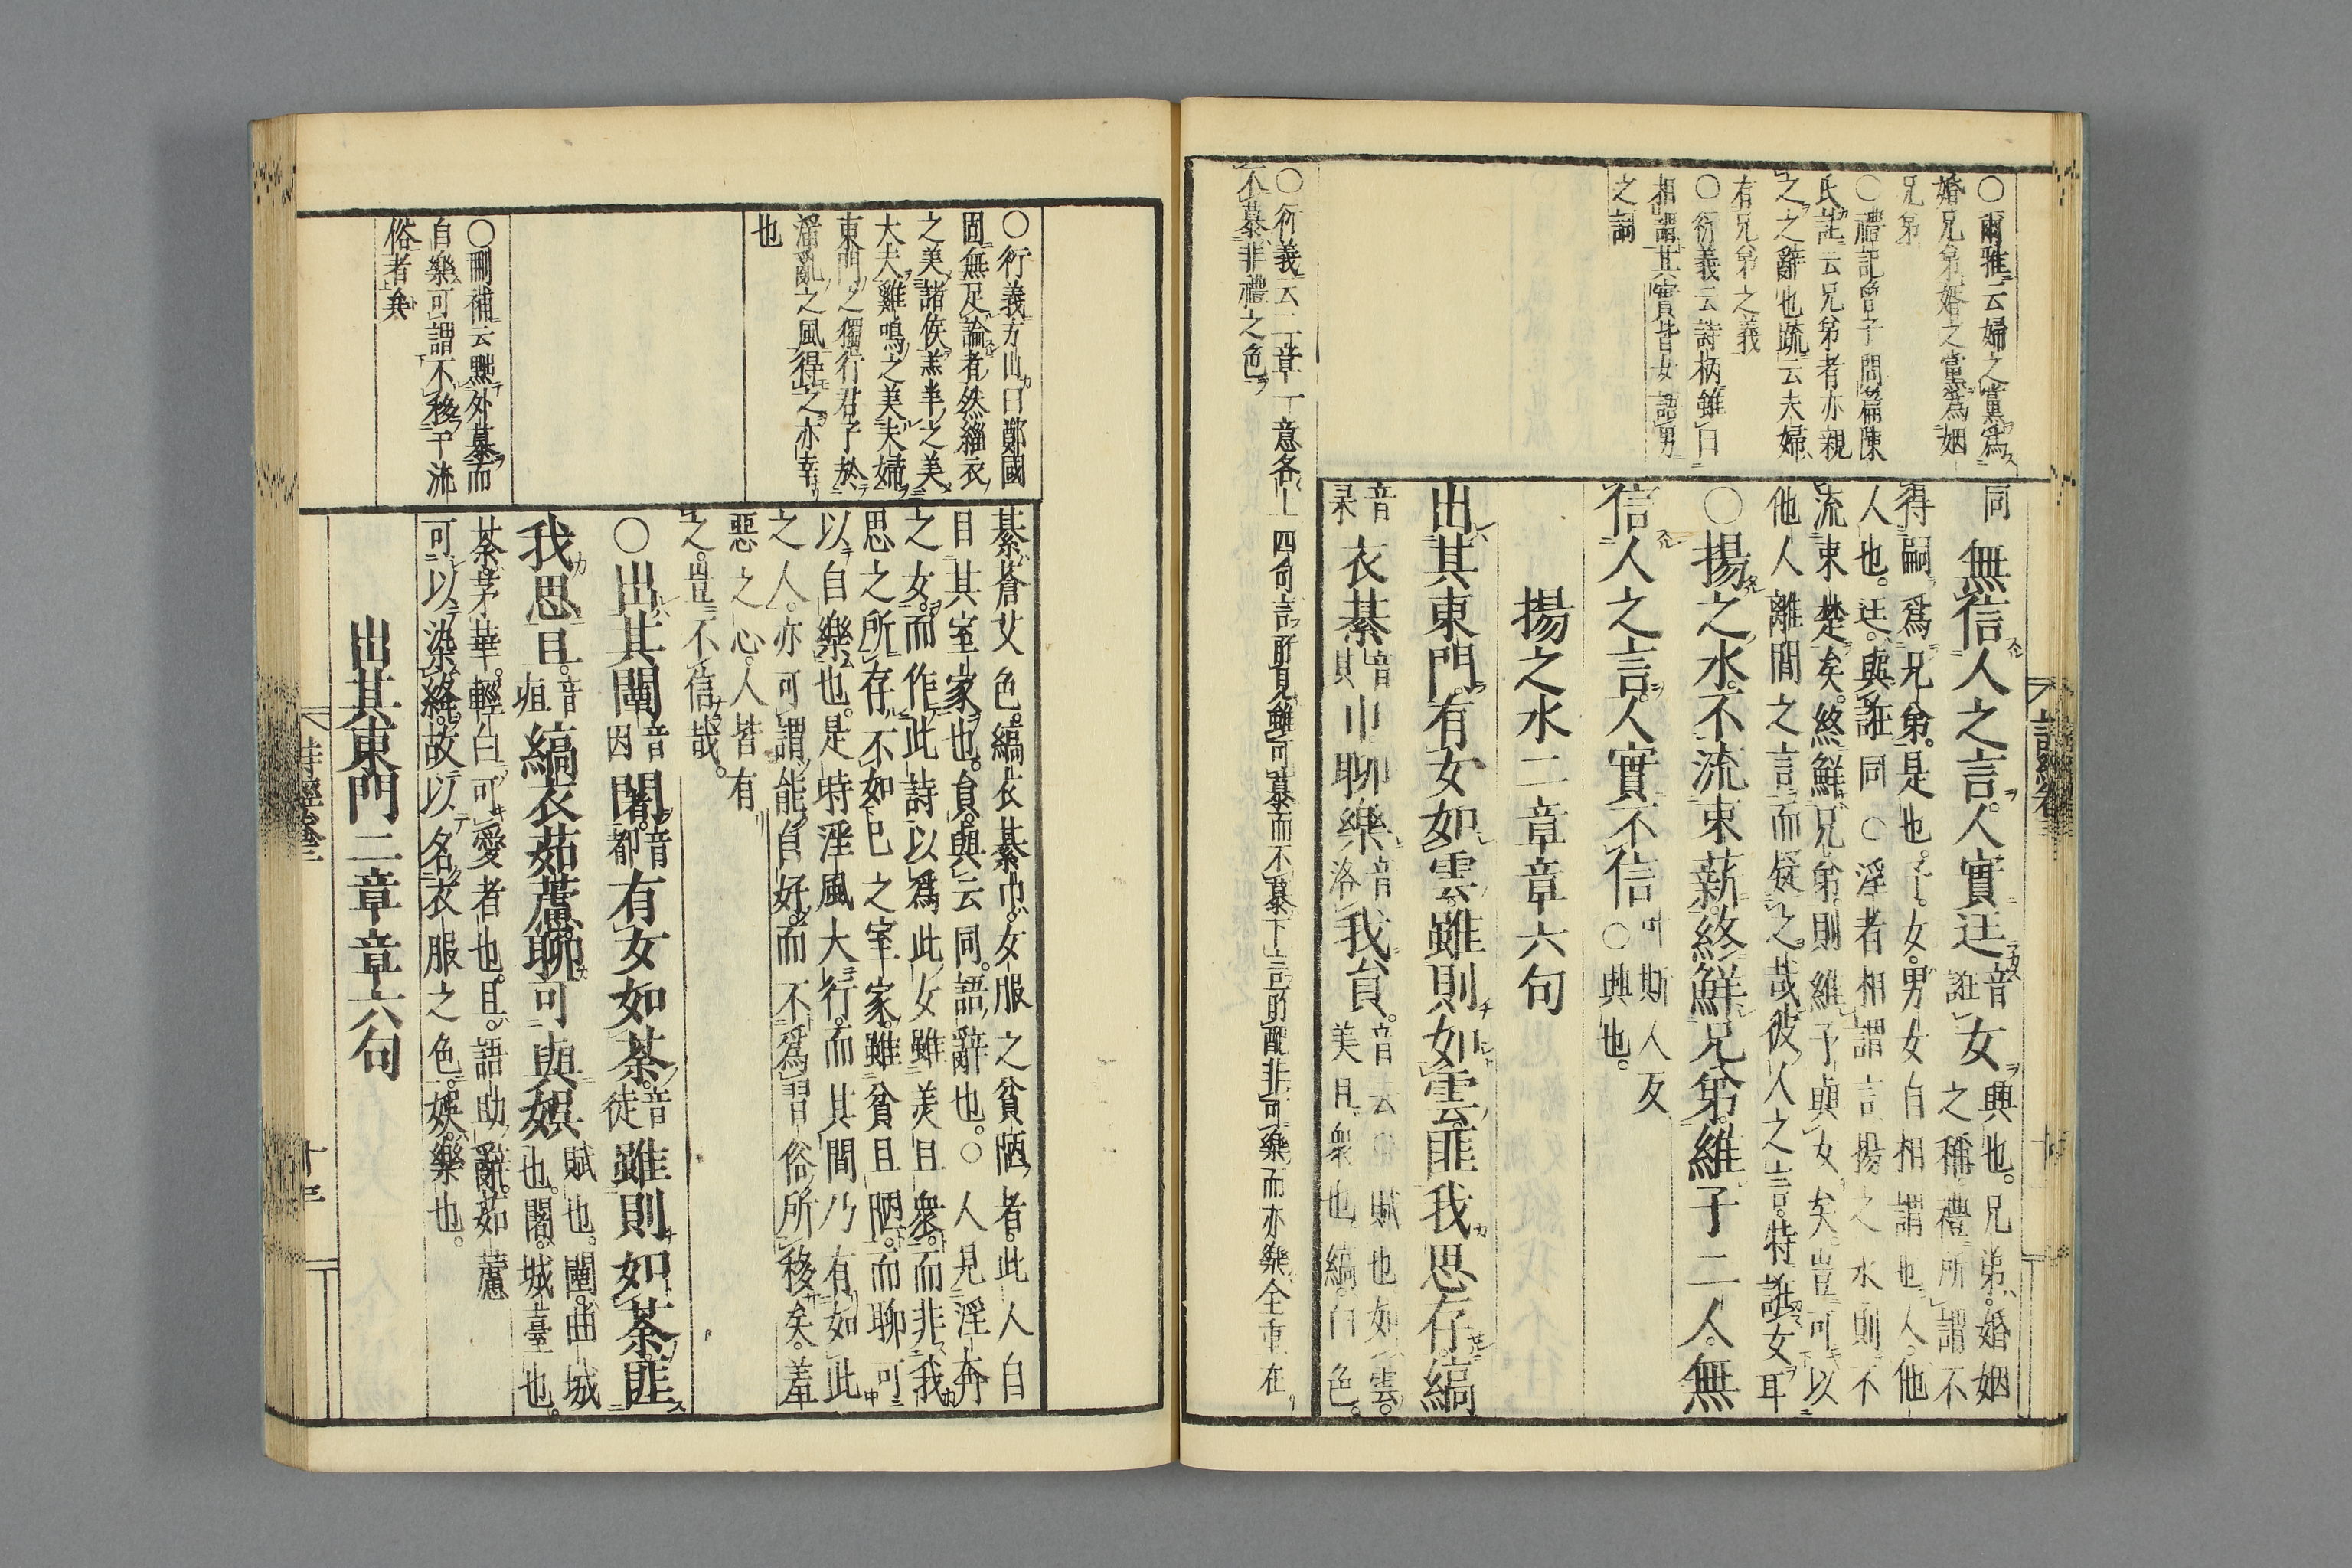 ○爾雅云婦之黨爲
婚兄弟婚之黨爲姻
兄弟
○禮記曾子問篇陳
氏註云兄弟者亦親
之之辭也疏云夫婦
有兄弟之義
○衍義云詩柄雖曰
相謂其實皆女語男
之詞
○衍義云二章一意各上四句言所見雖可慕而不慕下言所配非可樂而亦樂全重在
不慕非禮之色
同
無信人之言。人實迋音誑女興也。兄弟。婚姻之稱。禮所謂不
得嗣爲兄弟。是也。予。女。男女自相謂也。人。他
人也。迋。與誑同○淫者相謂言揚之水則不
流束楚矣。終鮮兄弟。則維予與女矣。豈可以
他人離間之言。而疑之哉。彼人之言。特誑女耳
○揚之水。不流束薪。終鮮兄弟。維予二人。無
信人之言。人實不信叶斯人反○興也。
揚之水二章章六句
出其東門。有女如雲。雖則如雲。匪我思存。縞
音杲衣綦音其巾聊樂音洛我員。音云賦也如雲。美且衆也。縞。白色。
詩經卷三
○衍義方山曰鄭國
固無足論者然緇衣
之美諸侯羔羊之美
大夫雞鳴之美夫婦
東門之獨行君子於
淫亂之風得之亦幸
也
○刪補云黜外慕而
自樂可謂不移于流
俗者矣
綦。蒼艾色。縞衣綦巾。女服之貧陋者。此人自
目其室家也。員。與云同。語辭也。○人見淫奔
之女。而作此詩。以爲此女雖美且衆。而非我
思之所存。不如己之室家。雖貧且陋。而聊可
以自樂也。是時淫風大行。而其間乃有如此
之人。亦可謂能自好。而不爲習俗所移矣。羞
惡之心。人皆有
之。豈不信哉。
○出其闉音因闍。音都有女如荼。音徒雖則如荼。匪
我思且。音疽縞衣茹藘。聊可與娛賦也。闉。曲城也。闍。城臺也。
荼。茅華。輕白可愛者也。且。語助辭。茹藘
可以染絳。故以名衣服之色。娛。樂也。
出其東門二章章六句
詩經卷三
十三